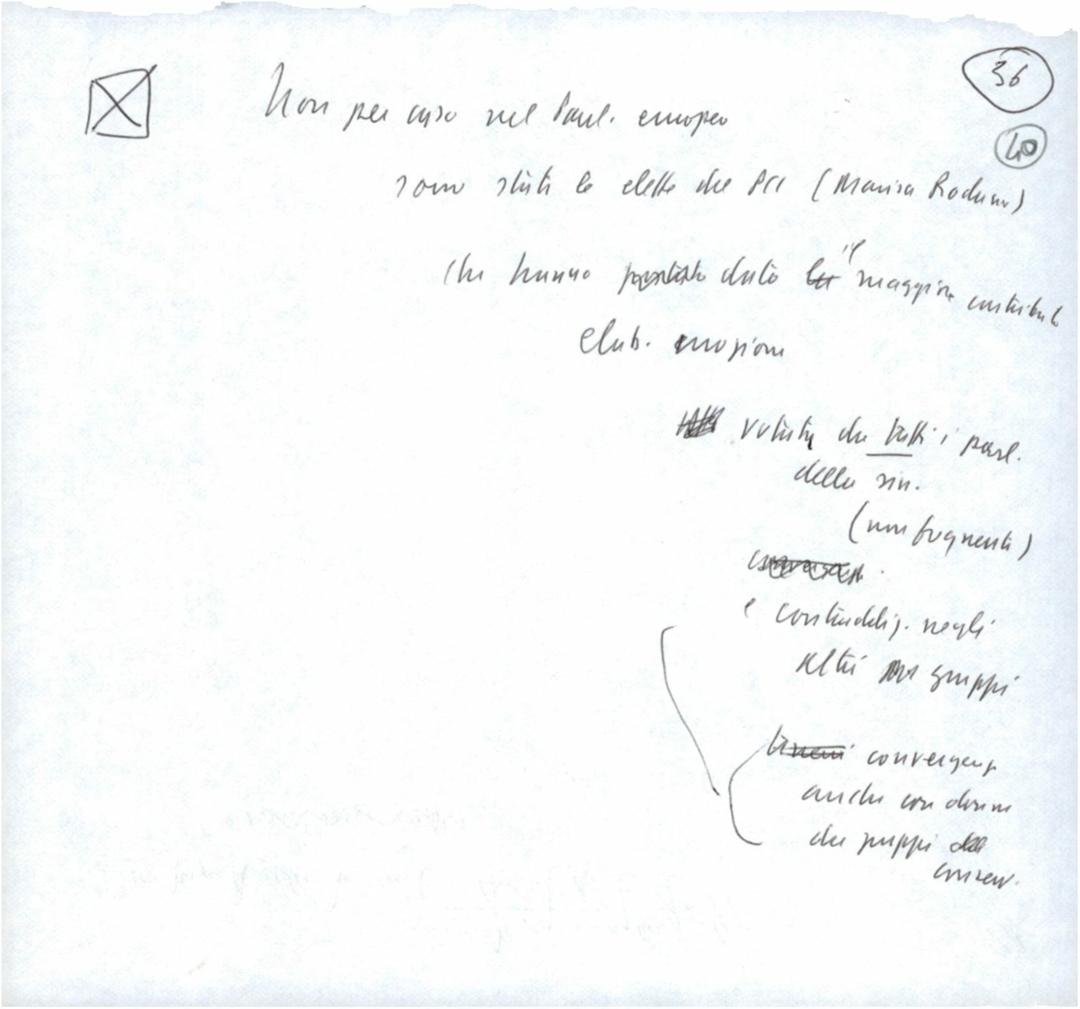 36
40
Non per caso nel Parl. europeo
sono state le elette del PCI (Marisa Rodano)
che hanno portato dato il maggior contributo
elab. mozione
votata da tutti i parl.
della sin.
(non frequente)
e contraddiz. negli
altri gruppi
convergenza
anche con donne
dei gruppi
conserv.